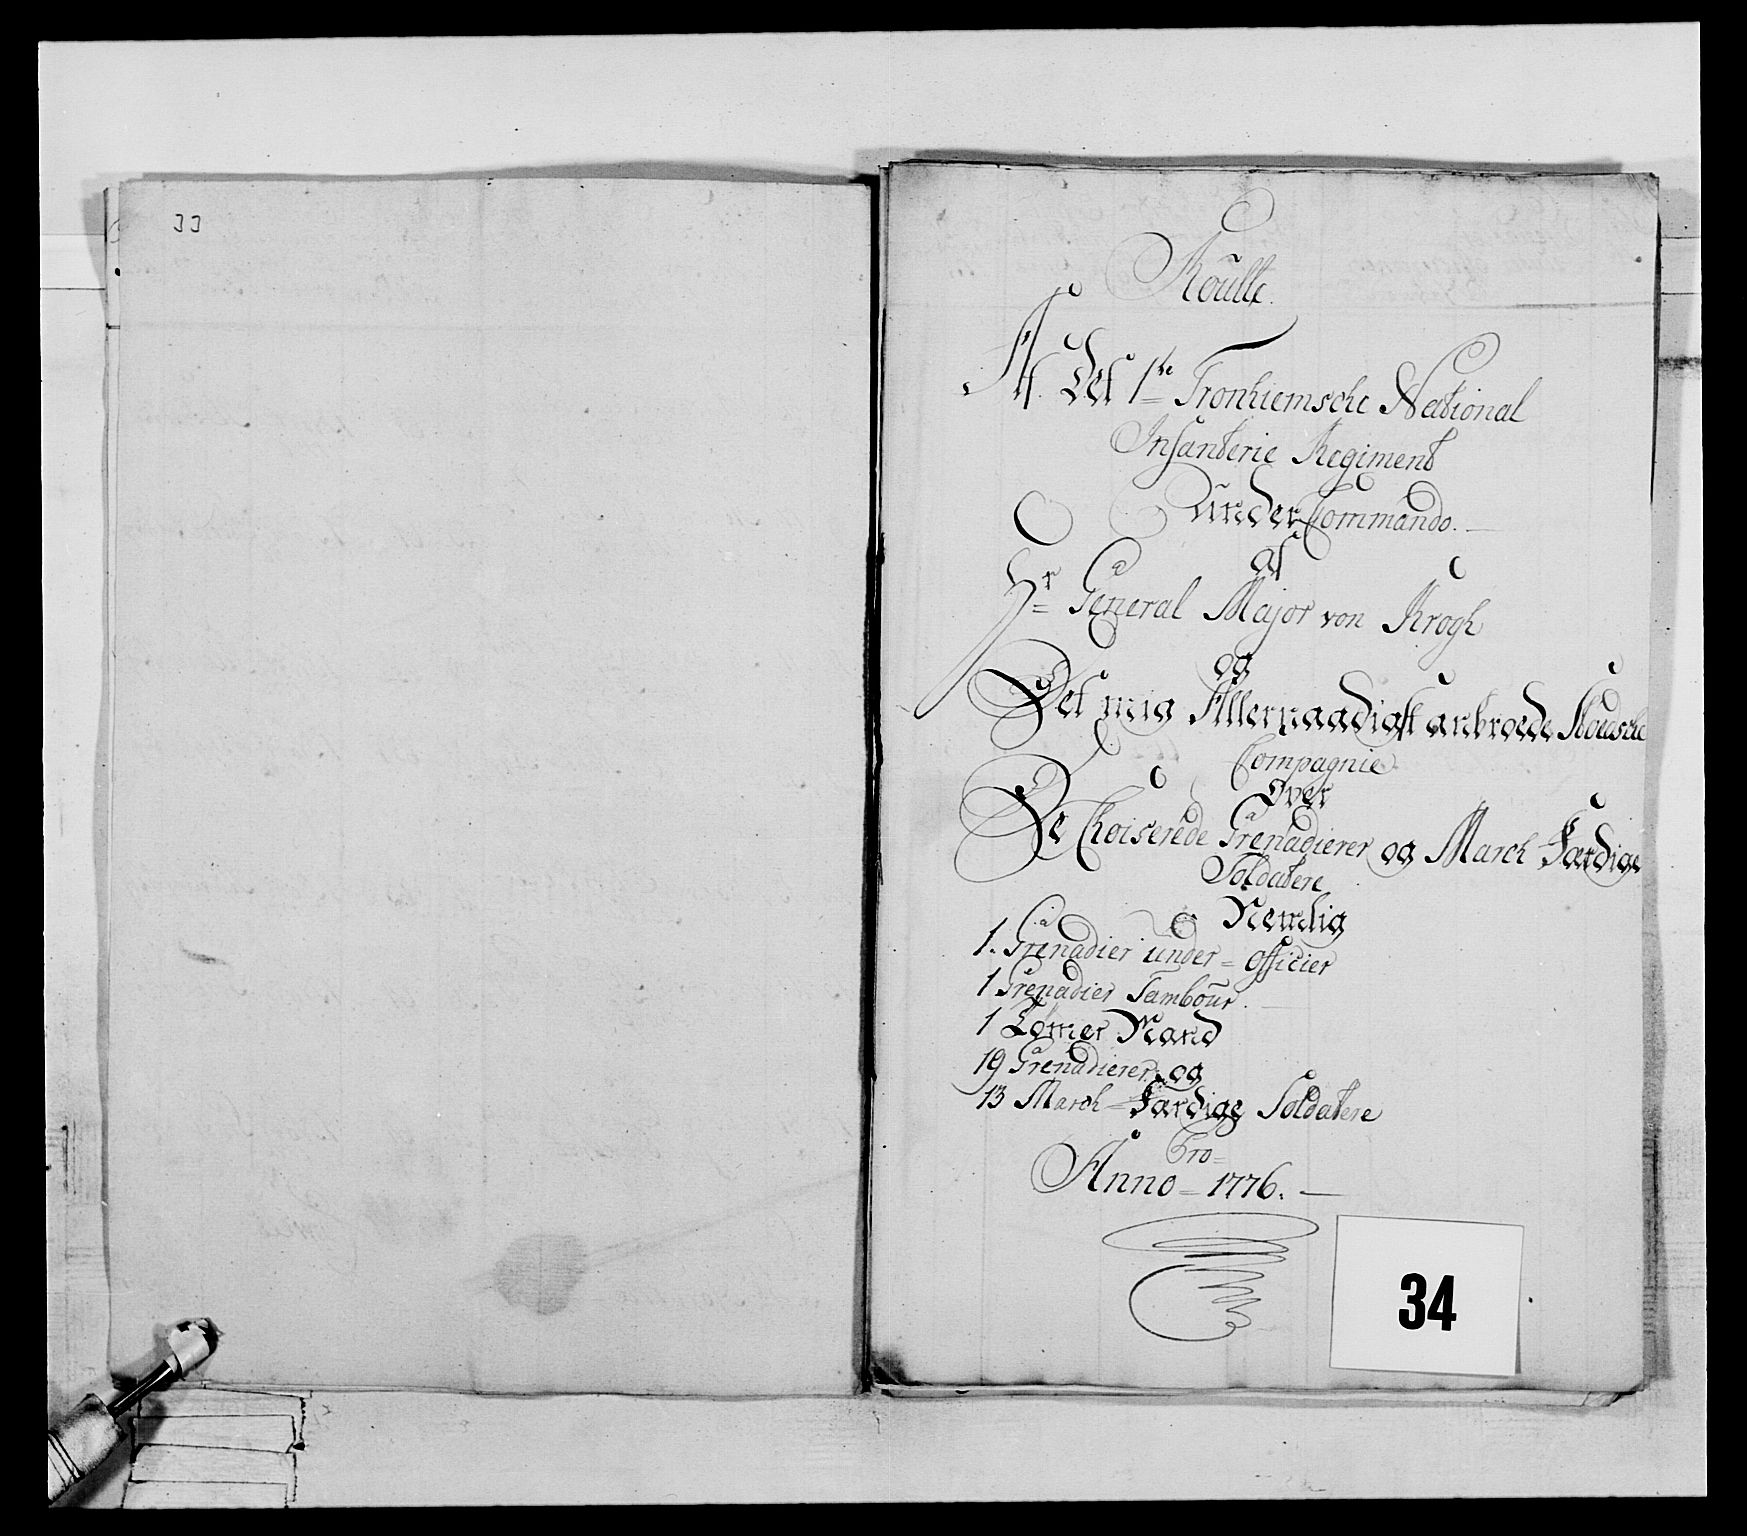 33
Roulle.
Af Det 1te Tronhiemsche National
Infanterie Regiment
under Commando.
af
Hr General Major von Krogh
og
Det mig Allernaadigst anbroede
Compagnie
Over
De Choiserede Grenadierer og March Færdige
Soldatere
Nemlig
1. Grenadier under = officier
1 Grenadier Tambour.
1 Tømer Mand
19 Grenadierer og
13 March = Færdige Soldatere
Pro =
Anno = 1776.
34